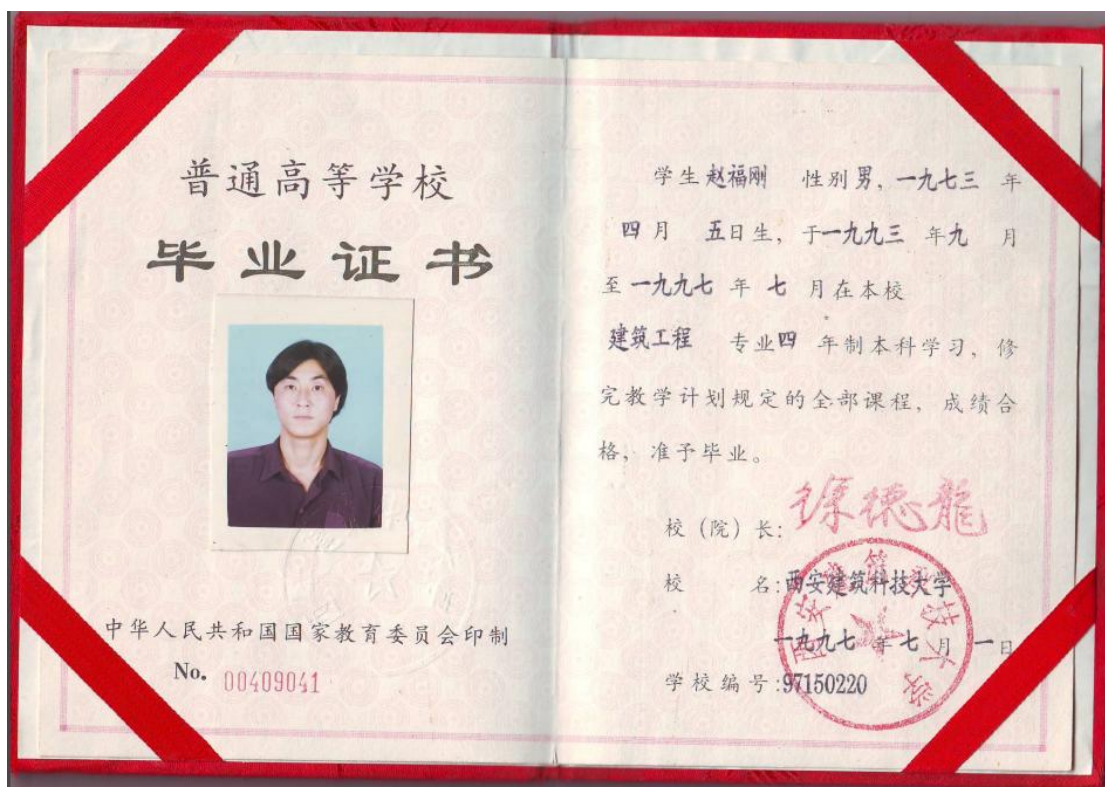 普通高等学校
毕业证书
中华人民共和国国家教育委员会印制
No. 00409041
学生赵福刚 性别男，一九七三 年
四月 五日生，于一九九三 年九 月
至一九九七 年 七 月在本校
建筑工程 专业四 年制本科学习，修
完教学计划规定的全部课程，成绩合
格，准予毕业。
校（院）长：徐德龙
校 名：西安建筑科技大学
一九九七 年七 月 一日
学校编号：97150220
西安建筑科技大学